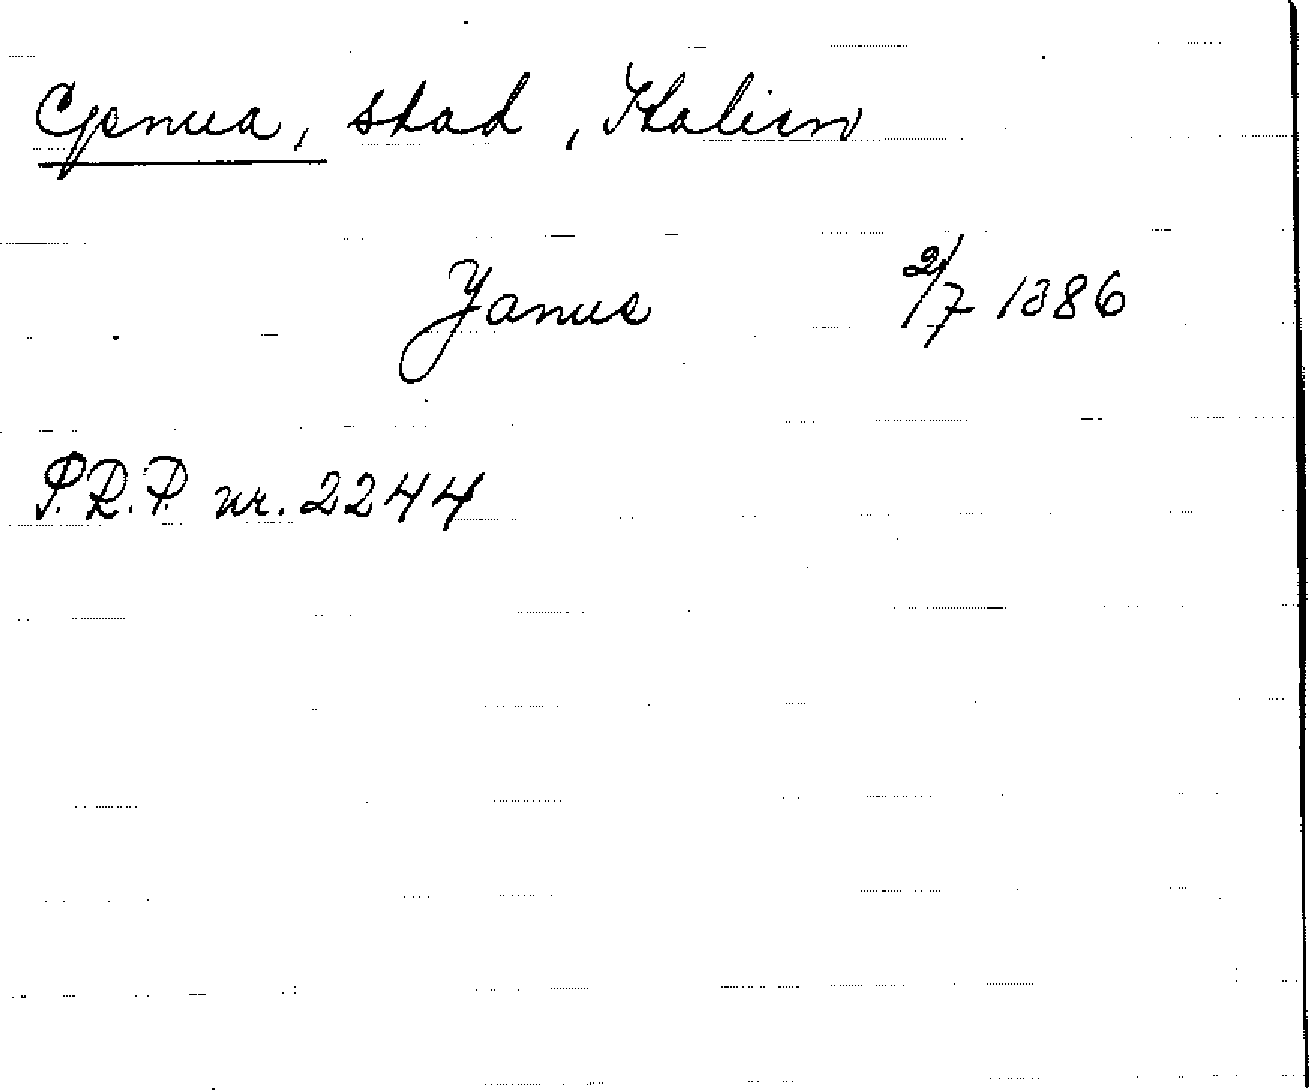 Genua, stad, Italien
Janue 2/7 1386
S.R.P. nr. 2244